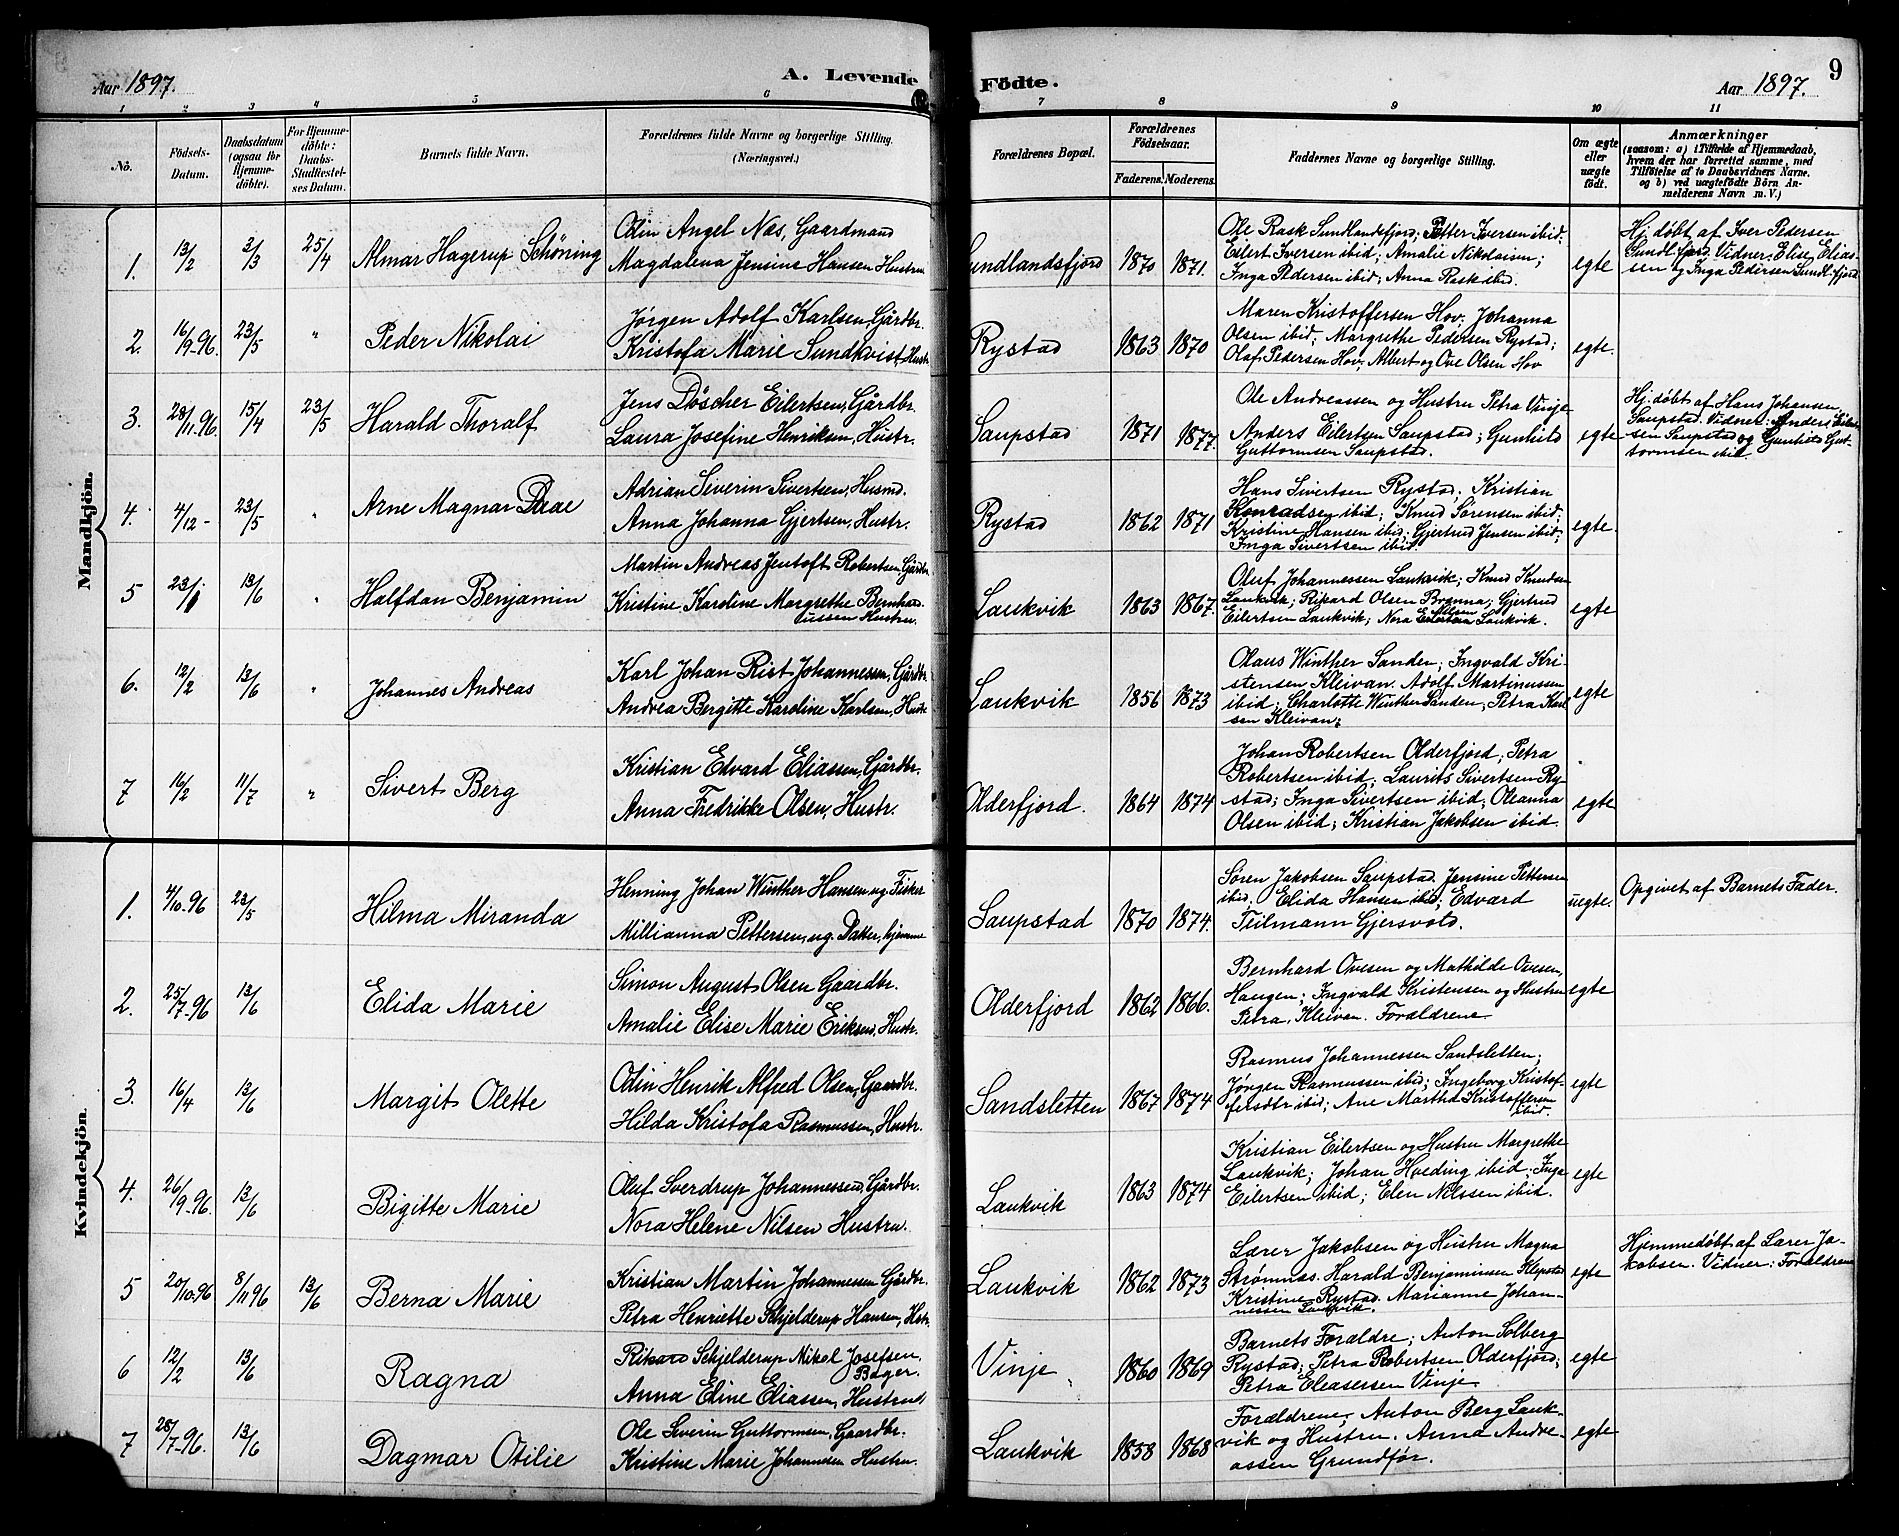 Aar 1897.
A. Levende
Födte.
Aar 1897.
9
1 2 3 4 5 6 7 8 9 10 11
No.
Födsels-
Datum.
Daabsdatum
(ogsaa for
Hjemme-
döbte).
For Hjemme-
döbte:
Daabs-
Stadfæstel-
ses Datum.
Barnets fulde Navn.
Forældrenes fulde Navne og borgerlige Stilling.
(Næringsvei.)
Forældrenes Bopæl.
Forældrenes
Födselsaar.
Faderens. Moderens.
Faddernes Navne og borgerlige Stilling.
Om ægte
eller
uægte
födt.
Anmærkninger
(saasom: a) i Tilfælde af Hjemmedaab,
hvem der har forrettet samme, med
Tilföielse af to Daabsvidners Navne.
og b) ved uægtefödte Börn An-
melderens Navn m. V.)
Mandkjön.
1. 13/2 3/3 25/4 Almar Hagerup Schöning
Odin Angel Næs, Gaardmand
Magdalena Jensine Hansen Hustru
Sundlandsfjord 1870 1871.
Ole Rask Sundlandsfjord; Petter Iversen ibid;
Eilert Iversen ibid; Amalie Nikolaisen;
Inga Pedersen ibid; Anna Rask ibid.
egte
Hj. döbt af Iver Pedersen
Sundl.fjord. Vidner: Elise Elias-
sen og Inga Pedersen Sundl.fjord
2. 16/9-96. 23/5 " Peder Nikolai
Jørgen Adolf Karlsen, Gårdbr.
Kristofa Marie Sundkvist, Hustr.
Rystad 1863 1870
Maren Kristoffersen Hov. Johanna
Olsen ibid; Margrethe Pedersen Rystad;
Olaf Pedersen Hov; Albert og Ove Olsen Hov
egte.
3. 28/11.96. 15/4 23/5 Harald Thoralf
Jens Döscher Eilertsen, Gårdbr.
Laura Josefine Henriksen, Hustr.
Saupstad 1871 1877.
Ole Andreassen og Hustru Petra Vinje
Anders Eilertsen Saupstad; Gunhild
Guttormsen Saupstad.
egte
Hj. döbt af Hans Johansen
Saupstad. Vidner: Anders Eilert-
sen Saupstad og Gunhild Gut-
tormsen ibid.
4. 4/12 - 23/5 " Arne Magnar Daae
Adrian Severin Sivertsen, Husmd.
Anna Johanna Gjertsen, Hustr.
Rystad 1862 1871
Hans Sivertsen Rystad; Kristian
Konradsen ibid; Knud Sørensen ibid;
Kristine Hansen ibid; Gjertrud Jensen ibid;
Inga Sivertsen ibid
egte.
5 23/1 13/6 " Halfdan Benjamin
Martin Andreas Jentoft Robertsen, Gårdbr.
Kristine Karoline Margrethe Bernhard-
tussen Hustru.
Laukvik 1863 1867.
Oluf Johannessen Laukvik; Knud Knudsen
Laukvik; Rikard Olsen Brenna; Gjertrud
Eilertsen Laukvik; Nora Nilsen Laukvik.
egte
6. 12/2 13/6 " Johannes Andreas
Karl Johan Rist Johannessen, Gårdbr.
Andrea Bergitte Karoline Karlsen, Hustr
Laukvik 1856 1873
Olaus Winther Sanden; Ingvald Kri-
stensen Kleivan. Adolf Martinussen
ibid; Charlotte Winther Sanden; Petra Karl-
sen Kleivan;
egte
7 16/2 11/7 " Sivert Berg
Kristian Edvard Eliassen, Gårdbr.
Anna Fredrikke Olsen, Hustr.
Olderfjord. 1864 1874
Johan Robertsen Olderfjord; Petra
Robertsen ibid; Laurits Sivertsen Ry-
stad; Inga Sivertsen ibid; Oleanna
Olsen ibid; Kristian Jakobsen ibid.
egte
Kvindekjön.
1. 4/10.96 23/5 Hilma Miranda
Henning Johan Winther Hansen, ug. Fisker
Millianna Pettersen, ug. Datter, hjemme
Saupstad 1870 1874.
Søren Jakobsen Saupstad. Jensine Pettersen
ibid; Elida Hansen ibid; Edvard
Tiilmann Gjersvold.
uegte.
Opgivet af Barnets Fader.
2. 25/7-96 13/6 Elida Marie
Simon August Olsen Gaardbr.
Amalie Elise Marie Eriksen, Hustr.
Olderfjord 1862 1866.
Bernhard Ovesen og Mathilde Ovesen,
Haugen; Ingvald Kristensen og Hustru
Petra, Kleivan. Forældrene
egte
3. 16/4 13/6 Margit Olette
Odin Henrik Alfred Olsen, Gaardbr.
Hilda Kristofa Rasmussen, Hustr.
Sandsletten 1867 1874
Rasmus Johannessen Sandsletten;
Jörgen Rasmussen ibid; Ingeborg Kristof-
fersdtr ibid; Ane Martha Kristoffersen
ibid.
egte
4. 26/9-96. 13/6 Bigitte Marie
Oluf Sverdrup Johannessen, Gårdbr.
Nora Helene Nilsen Hustru.
Laukvik 1863 1874
Kristian Eilertsen og Hustru Margrethe
Laukvik; Johan Hveding ibid; Inga
Eilertsen ibid; Elen Nilssen ibid.
egte
5 20/10.96 8/11 96 13/6 Berna Marie
Kristian Martin Johannesen Gårdbr.
Petra Henriette Schjelderup Hansen, Hstr.
Laukvik 1862 1873
Lærer Jakobsen og Hustru Magna
Strømnæs. Harald Benjaminsen Klepstad
Kristine Rystad. Marianne Johan-
nessen Laukvik.
egte
Hjemmedöbt af Lærer Ja-
kobsen. Vidner: Forældrene
6 12/2 13/6 Ragna
Rikard Schjelderup Nikol Josefsen,
Bager.
Anna Eline Eliassen, Hustru
Vinje 1860 1869
Barnets Forældre; Anton Solberg
Rystad; Petra Robertsen Olderfjord;
Petra Eleasersen Vinje
egte
7 28/7-96. 13/6 Dagmar Otilie
Ole Severin Guttormsen, Gaardbr.
Kristine Marie Johannesen Hustru.
Laukvik 1858 1868
Forældrene; Anton Berg Lauk-
vik og Hustru. Anna Andre-
assen Grundfør.
egte